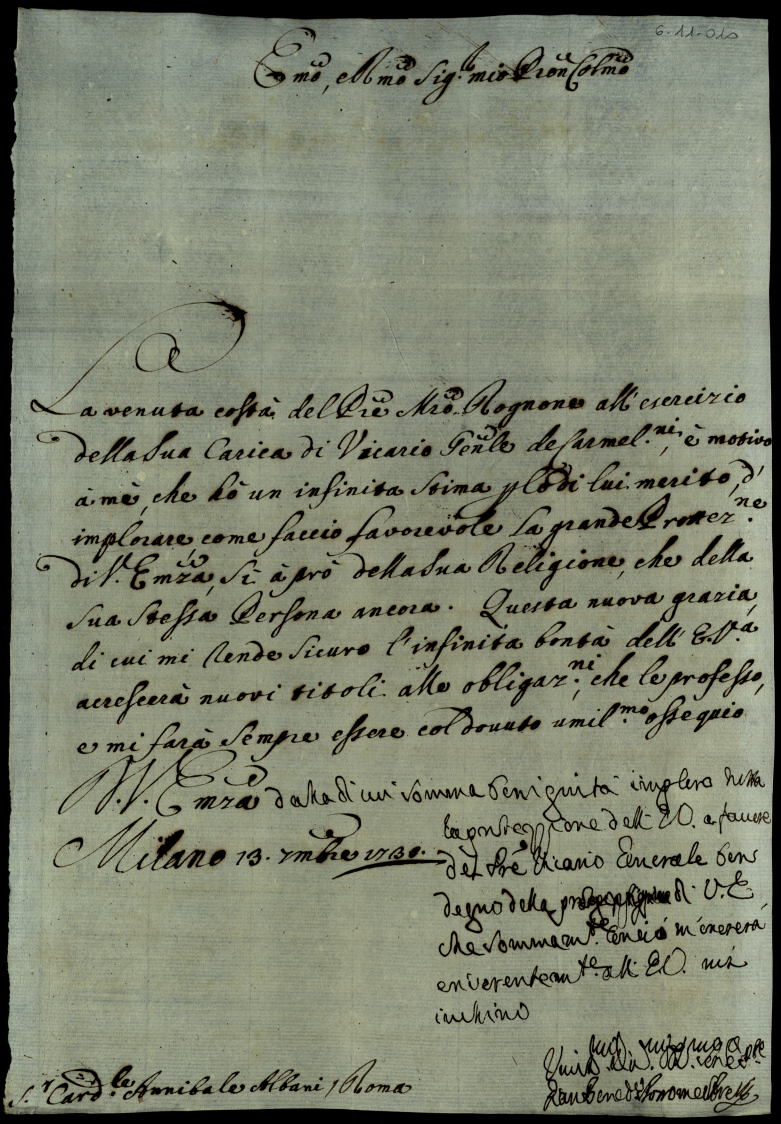 6-11-010
Emo, e Rmo Sig.r mio Pron Colmo
La venuta costà del Pre Mro Rognone all'esercizio
della sua Carica di Vicario Genle de Carmel.ni, è motivo
à mè, che hò un infinita stima p lo di lui merito, d'
implorare, come faccio favorevole la grande Protez.ne
di V. Emza, sì à prò della sua Religione, che della
sua stessa Persona ancora. Questa nuova grazia,
di cui mi rende sicuro l'infinita bontà dell' E.V.a
acrescerà nuovi titoli alle obligaz.ni, che le professo,
e mi farà sempre essere col dovuto umil.mo ossequio
D. V. Emza dalla di cui somma benignità imploro
la protezzione dell' E.V. a favore
Milano 13. 7mbre 1730.
del Pre Vicario Generale ben
degno della di V.E.
che sommam.te
e riverentem.te all' E.V. m'
inchino
S.r Card.le Annibale Albani, Roma